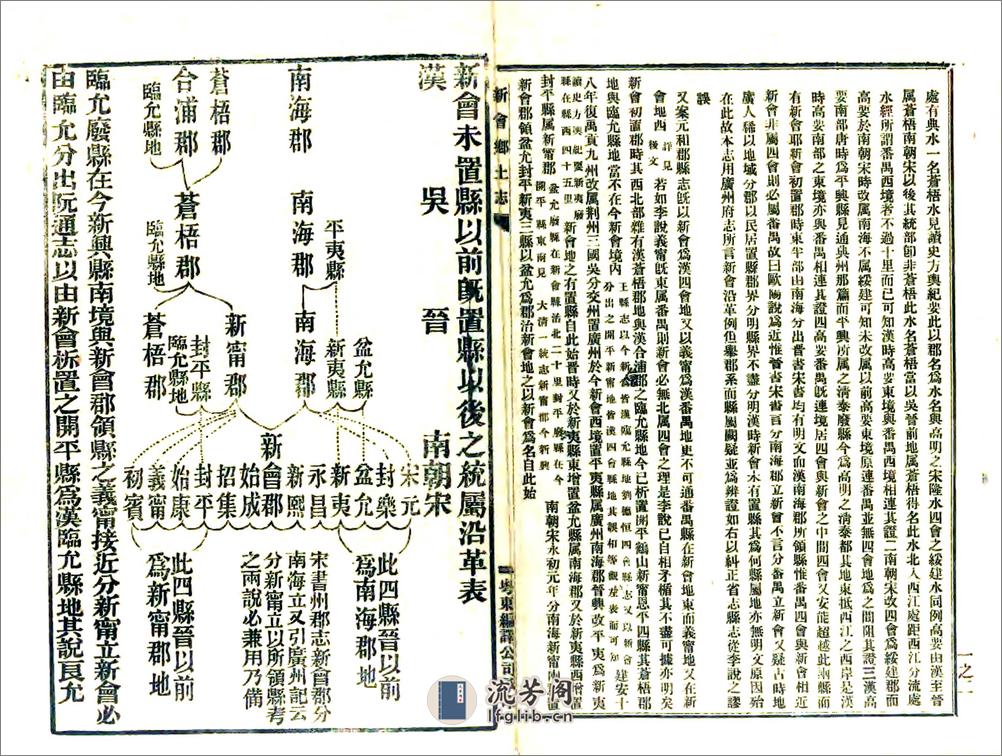 處有典水一名蒼梧水見讀史方輿紀要此以郡名爲水名與高明之宋隆水四會之綏建水同例高要由漢至晉
屬蒼梧南朝宋以後其統部卽非蒼梧此水名蒼梧當以吳晉前地屬蒼梧得名此水北入西江處距西江分流處
水經所謂番禺西境者不過十里而已可知漢時高要東境與番禺西境相連其證二南朝宋改四會爲綏建郡而
高要於南朝宋時改屬南海不屬綏建可知未改屬以前高要東境原連番禺並無四會地爲之間阻其證三漢高
要南部唐時爲平興縣見通典州郡篇而平興所屬之淸泰廢縣今爲高明之淸泰都其地東抵西江之西岸是漢
時高要南部之東境亦與番禺相連其證四高要番禺旣連境居四會與新會之中間四會又安能超越此兩縣而
有新會耶新會初置郡時東半部由南海分出晉書宋書均有明文而漢南海郡所領縣惟番禺四會與新會相近
新會非屬四會則必屬番禺故曰歐陽說爲近惟晉書宋書言分南海郡立新會不言分番禺立新會又疑古時地
廣人稀以地域分郡以民居置縣郡界分明縣界不盡分明漢時新會未有置縣其爲何縣屬地亦無明文原因殆
在此故本志用廣州府志所言新會沿革例但舉郡系而縣屬闕疑並爲辨證如右以糾正省志縣志從李說之謬
誤
又案元和郡縣志旣以新會爲漢四會地又以義甯爲漢番禺地更不可通番禺縣在新會縣地東而義甯地又在新
會地西詳見後文若如李說義甯旣東屬番禺則新會必無北屬四會之理是李說已自相矛楯其不盡可據亦明矣
新會初置郡時其西北部雜有漢蒼梧郡地與漢合浦郡之臨允縣地今已析置開平鶴山新甯恩平四縣其蒼梧郡
地與臨允縣地當不在今新會境內
八年復禹貢九州改屬荊州三國吳分交州置廣州於今新會西境置平夷縣屬廣州南海郡晉興改平夷爲新夷
新會地之有置縣自此始晉時又於新夷縣東增置盆允縣屬南海郡又於新夷西增置
封平縣屬新甯郡
南朝宋永初元年分南海新甯立
新會郡領盆允封平新夷三縣以盆允爲郡治新會地之以新會爲名自此始
新會鄉土志
粵東編譯公司
新會未置縣以前旣置縣以後之統屬沿革表
漢
吳
晉
南朝宋
南海郡
蒼梧郡
合浦郡
臨允縣地
平夷縣
南海郡
蒼梧郡
臨允縣地
盆允縣
新夷縣
南海郡
新甯郡
封平縣
臨允縣地
蒼梧郡
新會郡
宋元
封樂
盆允
新夷
永昌
新熙
始成
招集
封平
始康
義甯
初賓
此四縣晉以前爲南海郡地
宋書州郡志新會郡分
南海立又引廣州記云
分新甯立以所領縣考
之兩說必兼用乃備
此四縣晉以前爲新甯郡地
臨允廢縣在今新興縣南境與新會郡領縣之義甯接近分新甯立新會必
由臨允分出阮通志以由新會析置之開平縣爲漢臨允縣地其說良允
流芳阁
lfglib.com